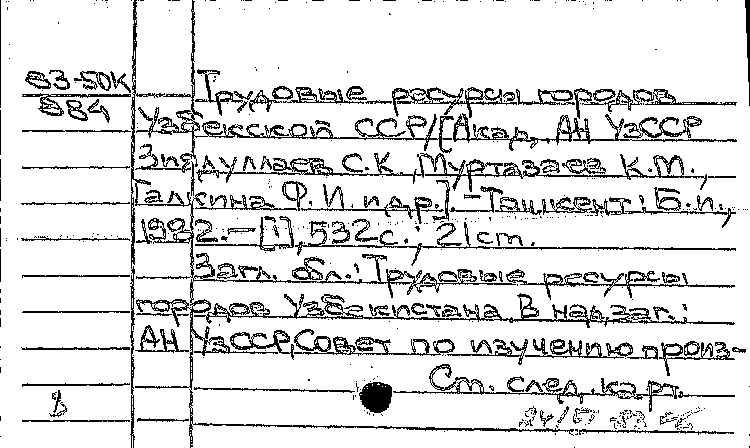 83-50К
884
Трудовые ресурсы городов
Узбекской ССР/[Акад. АН УзССР
Зиядуллаев С.К., Муртазаев К.М.,
Галкина Ф.И. и др.].-Ташкент: Б.и.,
1982.-[1],532с.; 21см.
Загл. обл.: Трудовые ресурсы
городов Узбекистана. В надзаг.:
АН УзССР, Совет по изучению произ-
См. след. карт.